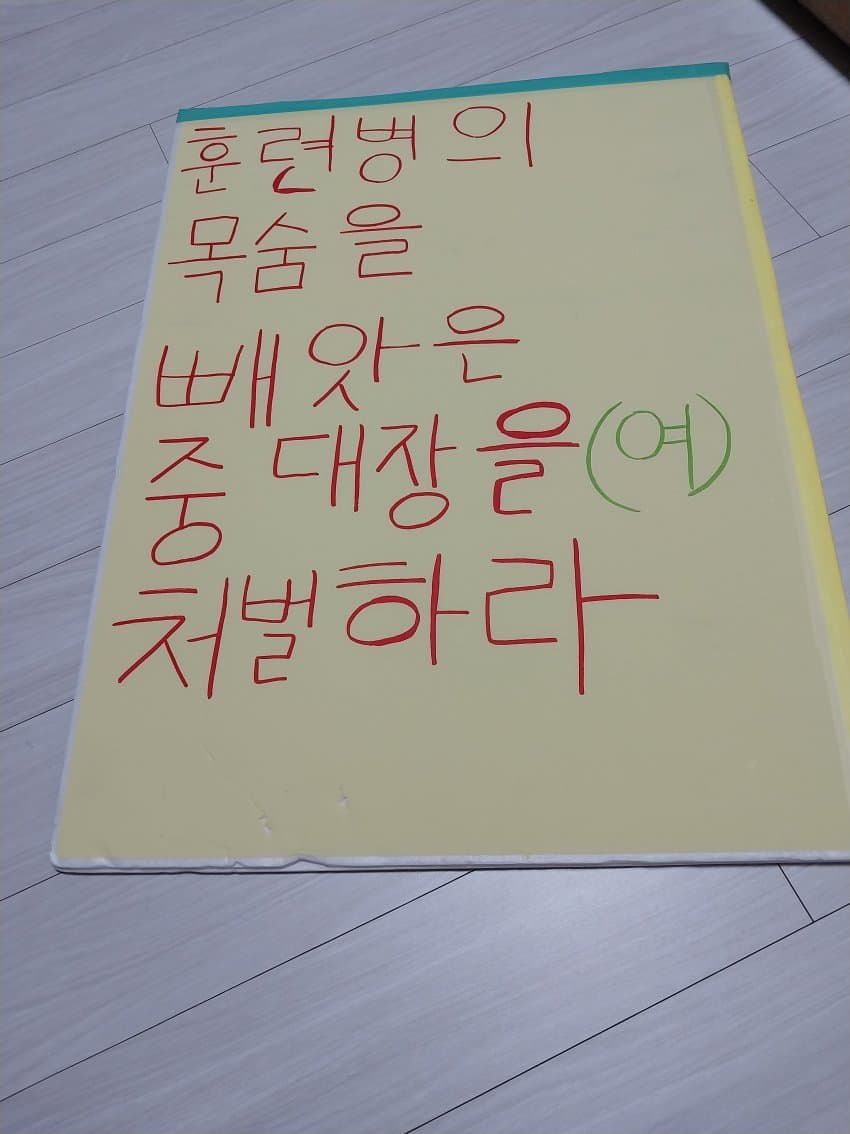 훈련병의
목숨을
빼앗은
중대장을(여)
처벌하라